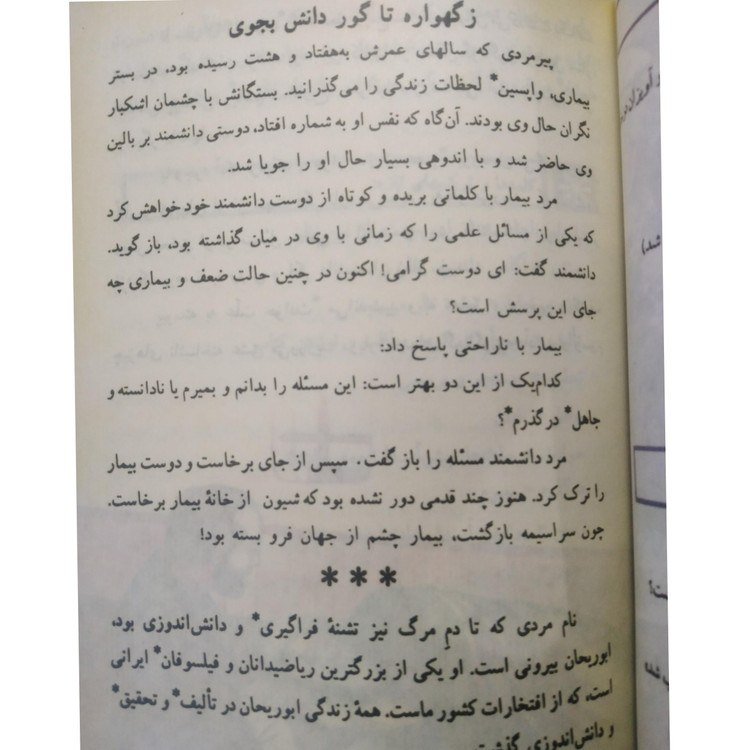 زگهواره تا گور دانش بجوی
پیرمردی که سالهای عمرش به‌هفتاد و هشت رسیده بود، در بستر
بیماری، واپسین* لحظات زندگی را می‌گذرانید. بستگانش با چشمان اشکبار
نگران حال وی بودند. آن‌گاه که نفس او به شماره افتاد، دوستی دانشمند بر بالین
وی حاضر شد و با اندوهی بسیار حال او را جویا شد.
مرد بیمار با کلماتی بریده و کوتاه از دوست دانشمند خود خواهش کرد
که یکی از مسائل علمی را که زمانی با وی در میان گذاشته بود، باز گوید.
دانشمند گفت: ای دوست گرامی! اکنون در چنین حالت ضعف و بیماری چه
جای این پرسش است؟
بیمار با ناراحتی پاسخ داد:
کدام‌یک از این دو بهتر است: این مسئله را بدانم و بمیرم یا نادانسته و
جاهل* درگذرم*؟
مرد دانشمند مسئله را باز گفت. سپس از جای برخاست و دوست بیمار
را ترک کرد. هنوز چند قدمی دور نشده بود که شیون از خانهٔ بیمار برخاست.
چون سراسیمه بازگشت، بیمار چشم از جهان فرو بسته بود!
* * *
نام مردی که تا دمِ مرگ نیز تشنهٔ فراگیری* و دانش‌اندوزی بود،
ابوریحان بیرونی است. او یکی از بزرگترین ریاضیدانان و فیلسوفان* ایرانی
است، که از افتخارات کشور ماست. همهٔ زندگی ابوریحان در تألیف* و تحقیق*
و دانش‌اندوزی گذشت